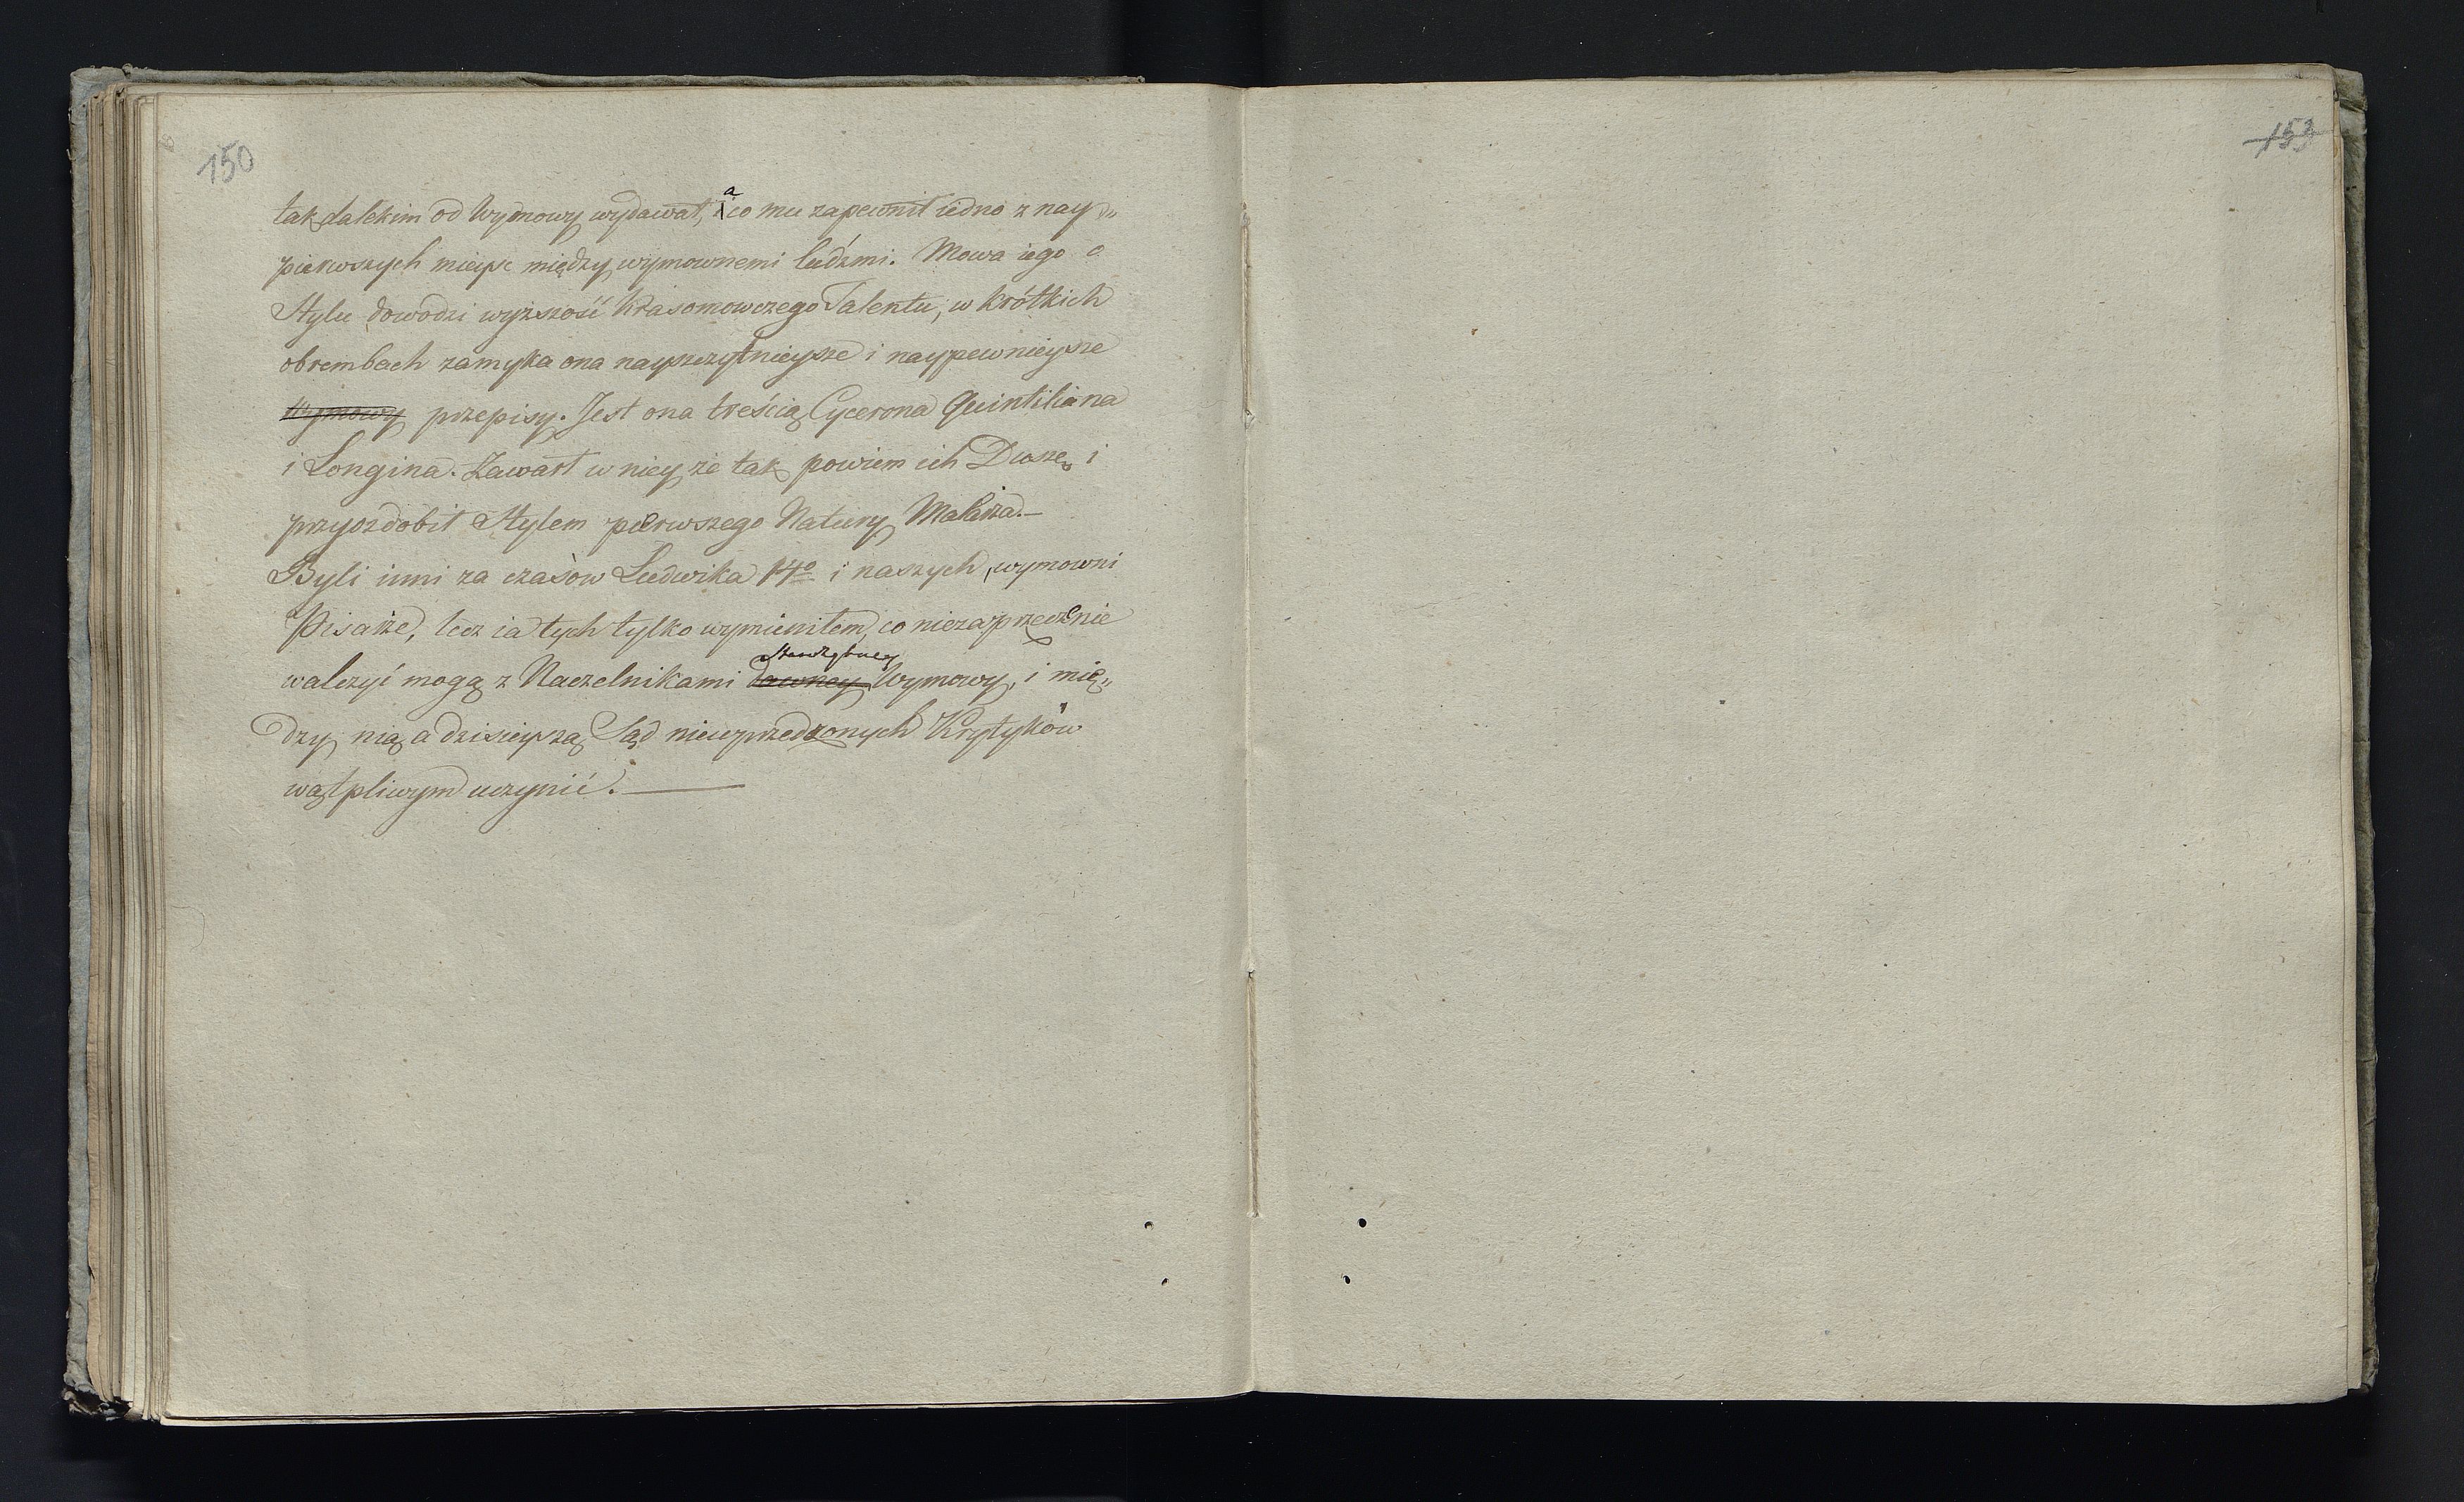 150
153
tak dalekim od Wymowy wydawał, a co mu zapewnił iedno z nay„
pierwszych mieysc między wymownemi ludźmi. Mowa iego o
Stylu dowodzi wyższość Krasomowczego Talentu, w krótkich
obrembach zamyka ona nayszczytnieysze i naypewnieysze
Wymowy przepisy. Jest ona treścią Cycerona Quintiliana
i Longina. Zawarł w niey że tak powiem ich Duszę i
przyozdobił Stylem pierwszego Natury Malarza.—
Byli inni za czasów Ludwika 14º i naszych, wymowni
Pisarze, lecz ia tych tylko wymieniłem, co niezaprzecznie
Starożytney
walczyć mogą z Naczelnikami dawney Wymowy, i mię„
dzy nią a dzisieyszą Sąd nieuprzedzonych Krytyków
wątpliwym uczynić. —